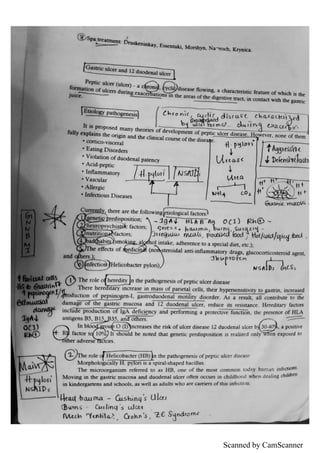 Spa treatment: Druskeninkay, Essentuki, Morshyn, Na ovoch, Krynica.
Gastric ulcer and 12 duodenal ulcer
Peptic ulcer (ulcer) - a chronic, cyclic disease flowing, a characteristic feature of which is the
formation of ulcers during exacerbations in the areas of the digestive tract, in contact with the gastric
juice.
Etiology pathogenesis
Chronic, cyclic disease characterized
by ulcer format. during exacerb
It is proposed many theories of development of peptic ulcer disease. However, none of them
fully explains the origin and the clinical course of the disease:
• cortico-visceral
• Eating Disorders
• Violation of duodenal patency
• Acid-peptic
• Inflammatory
• Vascular
• Allergic
• Infectious Diseases
H. pylori
NSAID
H. pylori
Urease
Urea
NH3 CO2
↑ Aggressive
↓ Defensive factors
H+ H+ H+
Gastric mucosa
Currently, there are the following etiological factors:
① genetic predisposition;
② neuropsychiatric factors;
③ nutritional factors;
④ bad habits (smoking, alcohol intake, adherence to a special diet, etc.);
⑤ The effects of nonsteroidal anti-inflammatory drugs, glucocorticosteroid agent,
and others.);
⑥ infection (Helicobacter pylori).
IgA↓ HLA B Ag O(I) Rh⊕
stress, trauma, burns, surgery
Irregular meals, Hot/cold/spicy food
Ibuprofen
NSAIDs GCS
G
N
N
B
N
I
① The role of heredity in the pathogenesis of peptic ulcer disease
There hereditary increase in mass of parietal cells, their hypersensitivity to gastrin, increased
production of pepsinogen-I, gastroduodenal motility disorder. As a result, all contribute to the
damage of the gastric mucosa and 12 duodenal ulcer, reduce its resistance. Hereditary factors
include production of IgA deficiency and performing a protective function, the presence of HLA
antigens B5, B15, B35, and others.
In blood group O (I) increases the risk of ulcer disease 12 duodenal ulcer by 30-40%, a positive
Rh factor by 10%. It should be noted that genetic predisposition is realized only when exposed to
other adverse factors.
↑ Parietal cells
HS to Gastrin
↑ pepsinogen I
damage
IgA↓
O(I)
Rh⊕
② The role of Helicobacter (HB) in the pathogenesis of peptic ulcer disease
Morphologically H. pylori is a spiral-shaped bacillus.
The microorganism referred to as HB, one of the most common today human infections
Moving in the gastric mucosa and duodenal ulcer often occurs in childhood when dealing children
in kindergartens and schools, as well as adults who are carriers of this infection.
Main
H pylori
NSAIDs
Head trauma - Cushing's Ulcer
Burns - Curling's ulcer
Mech Ventila, Crohn's, ZE Syndrome
Scanned by CamScanner